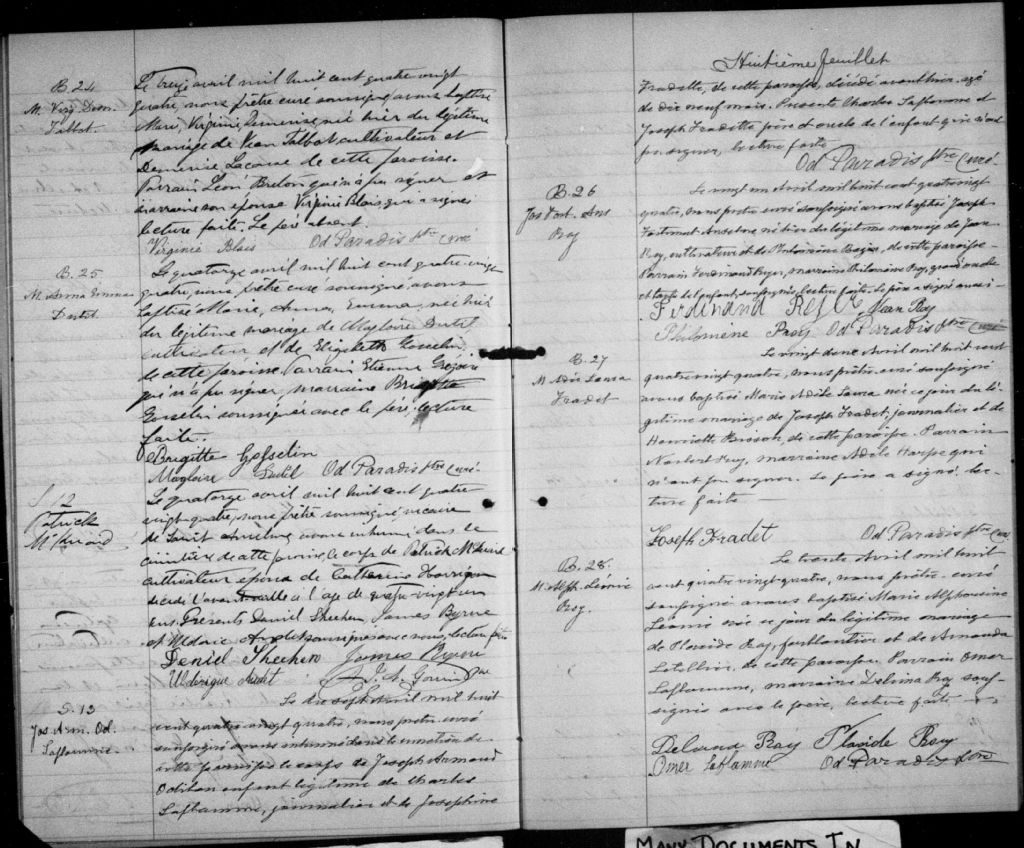 B. 24
M. Virg. Dem.
Talbot.
Le treize avril mil huit cent quatre vingt
quatre, nous prêtre curé soussigné avons baptisé
Marie, Virginie, Demerise, née hier du légitime
mariage de Jean Talbot cultivateur et
Demerise Lacasse de cette paroisse.
Parrain Léon Breton qui n'a pu signer et
marraine son épouse Virginie Blais, qui a signé
lecture faite. Le père absent.
Virginie Blais Od Paradis Ptre Curé
B. 25
M. Anna Emma
Dutil
Le quatorze avril mil huit cent quatre vingt
quatre, nous prêtre curé soussigné, avons
baptisé Marie, Anna, Emma, née hier
du légitime mariage de Magloire Dutil
cultivateur et de Elizabeth Gosselin
de cette paroisse. Parrain Etienne Grégoire
qui n'a pu signer, marraine Brigitte
Gosselin soussignée avec le père, lecture
faite.
Brigitte Gosselin
Magloire Dutil Od Paradis Ptre Curé
S 12
Patrick
Le quatorze avril mil huit cent quatre
vingt quatre, nous prêtre soussigné, vicaire
de Saint Anselme, avons inhumé dans le
cimetière de cette paroisse, le corps de Patrick
cultivateur époux de Catherine Horrigan
décédé l'avant veille à l'age de
ans. Présents Daniel Sheehan, James Byrne
et soussignés avec nous, lecture faite
Deniel Sheehen James Byrne
S. 13
Jos Arm. Od.
Laflamme.
Le dix sept avril mil huit
cent quatre vingt quatre, nous prêtre curé
soussigné avons inhumé dans le cimetière de
cette paroisse le corps de Joseph Armand
Odilon enfant légitime de Charles
Laflamme, journalier et de Josephine
Huitième feuillet
Fradette, de cette paroisse, décédé avant hier, agé
de dix neuf mois. Présents Charles Laflamme et
Joseph Fradette père et oncle de l'enfant qui n'ont
pu signer, lecture faite
Od Paradis Ptre Curé
B. 26
Jos Fort. Ans
Roy
Le vingt un Avril mil huit cent quatre vingt
quatre, nous prêtre curé soussigné avons baptisé Joseph
Fortunat Anselme né hier du légitime mariage de Jean
Roy, cultivateur et de Philomène de cette paroisse
Parrain Ferdinand Roy, marraine Philomène Roy, grand oncle
et tante de l'enfant, soussignés, lecture faite. Le père a signé aussi.
Ferdinand Roy Jean Roy
Philomène Roy Od Paradis Ptre Curé
B. 27
M Adèle Laura
Fradet
Le vingt deux Avril mil huit cent
quatre vingt quatre, nous prêtre curé soussigné
avons baptisé Marie Adèle Laura née ce jour du lé-
gitime mariage de Joseph Fradet, journalier et de
Henriette Bisson, de cette paroisse. Parrain
Norbert Roy, marraine Adèle qui
n'ont pu signer. Le père a signé lec-
ture faite
Joseph Fradet Od Paradis Ptre Curé
B. 28
M. Alph. Léonie
Roy.
Le trente Avril mil huit
cent quatre vingt quatre, nous prêtre curé
soussigné avons baptisé Marie Alphonsine
Léonie née ce jour du légitime mariage
de Placide Roy, ferblantier et de Amanda
Letellier, de cette paroisse. Parrain Omer
Laflamme, marraine Delvina Roy sous-
signés avec le père, lecture faite
Roy Placide Roy
Omer Laflamme Od Paradis Ptre
MANY DOCUMENTS IN